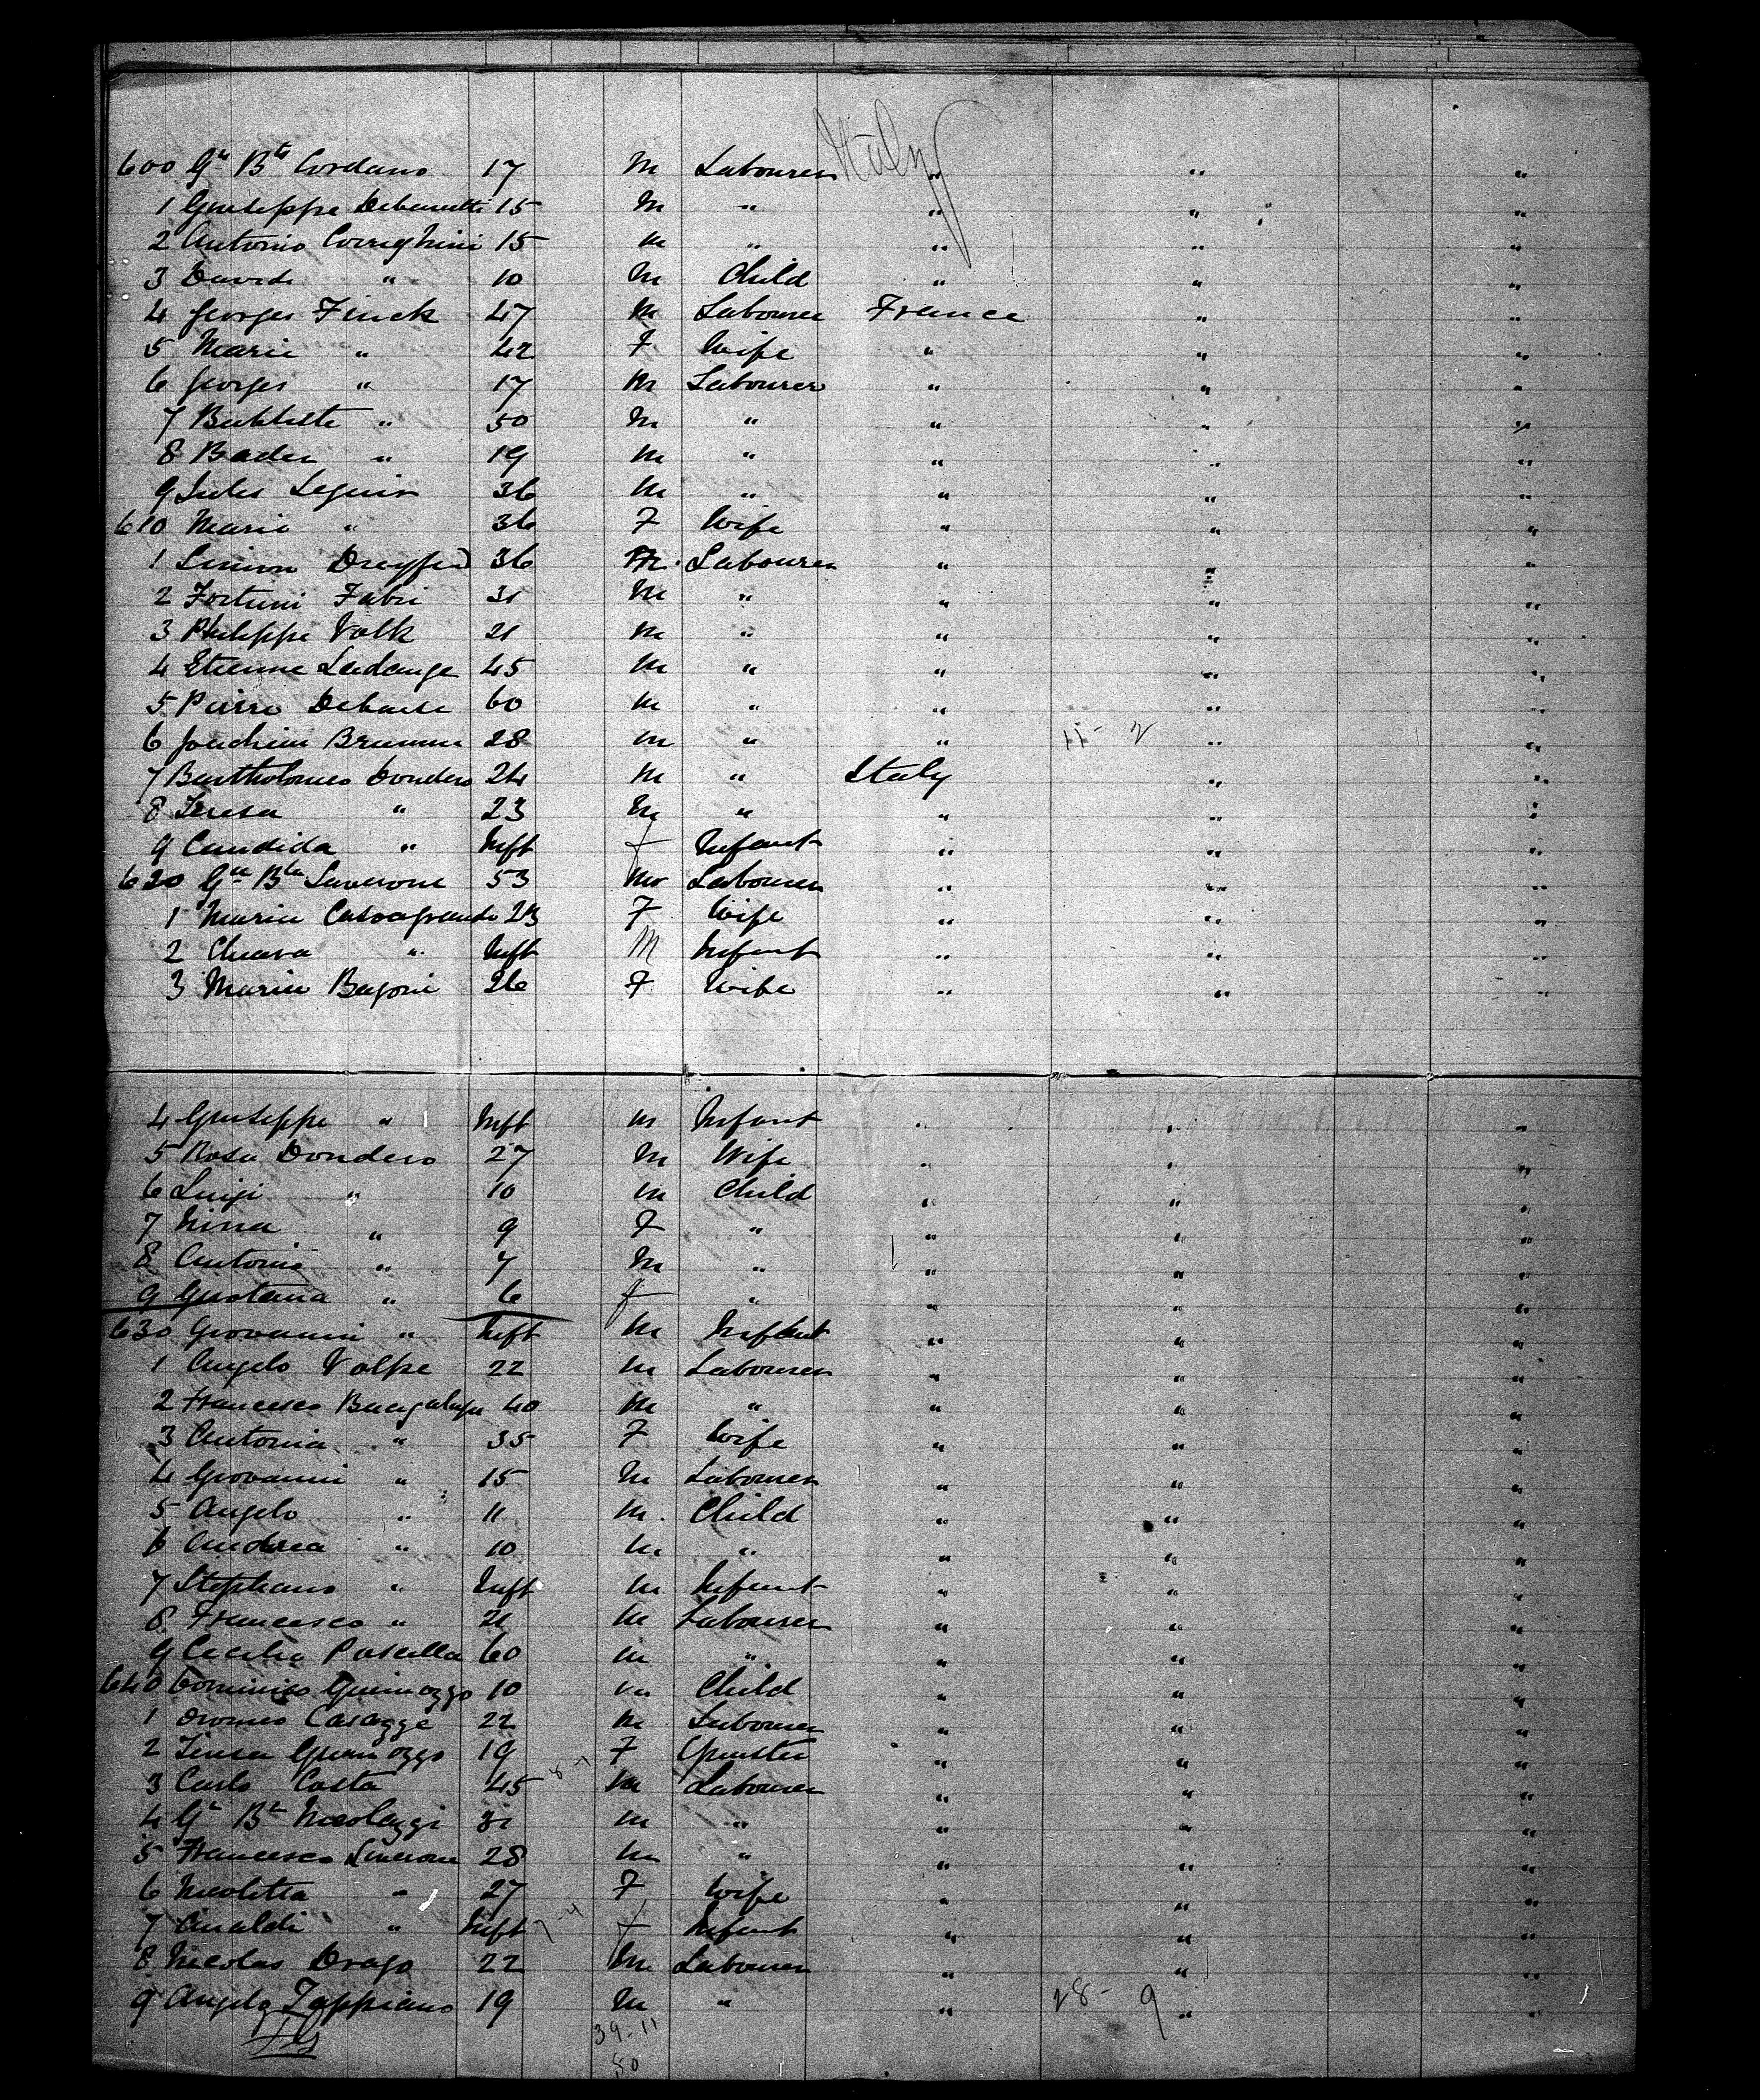 Italy
600 Gn Bta Cordano 17 M Labourer " " "
1 Giuseppe 15 M " " " "
2 Antonio Corrighini 15 M " " " "
3 Davide " 10 M Child " " "
4 Georges Finck 47 M Labourer France " "
5 Marie " 42 F Wife " " "
6 Georges " 17 M Labourer " " "
7 Babtiste " 50 M " " " "
8 Bader " 19 M " " " "
9 Jules Seguin 36 M " " " "
610 Marie " 36 F Wife " " "
1 Simon Dreyfus 36 M. Labourer " " "
2 Fortuni Fabri 31 M " " " "
3 Philippe Volk 21 M " " " "
4 Etienne Ladauge 45 M " " " "
5 Pierre 60 M " " " "
6 Joachim Brumm 28 M " " 11 - 2 " "
7 Bartholomeo Dondero 24 M " Italy " "
8 Teresa " 23 M " " " "
9 Candida " Inft f Infant " " "
620 Gn Bta Laverone 53 M Labourer " " "
1 Maria Casagrande 23 F Wife " " "
2 Chiara " Inft M Infant " " "
3 Maria Bagoni 26 F Wife " " "
4 Giuseppe " Inft M Infant " " "
5 Rosa Dondero 27 M Wife " " "
6 Luigi " 10 M Child " " "
7 Nina " 9 F " " " "
8 Antonio " 7 M " " " "
9 " 6 f " " " "
630 Giovanni " Inft M Infant " " "
1 Angelo Volpe 22 M Labourer " " "
2 Francesco Bacigalupo 40 M " " " "
3 Antonia " 35 F Wife " " "
4 Giovanni " 15 M Labourer " " "
5 Angelo " 11 M. Child " " "
6 Andrea " 10 M. " " " "
7 Stephano " Inft M Infant " " "
8 Francesco " 21 M Labourer " " "
9 Cecilia 60 M " " " "
640 Dominico 10 M Child " " "
1 Casagge 22 M Labourer " " "
2 Teresa 19 F " " "
3 Carlo Costa 45 M Labourer " " "
4 Gn Bta Nicolazzi 31 M " " " "
5 Francesco Laverone 28 M " " " "
6 Nicoletta " 27 F Wife " " "
7 " Inft 7-4 f Infant " " "
8 Nicolas Drago 22 M. Labourer " " "
9 Angelo Zappiano 19 M " " 28 - 9 " "
39-11
50